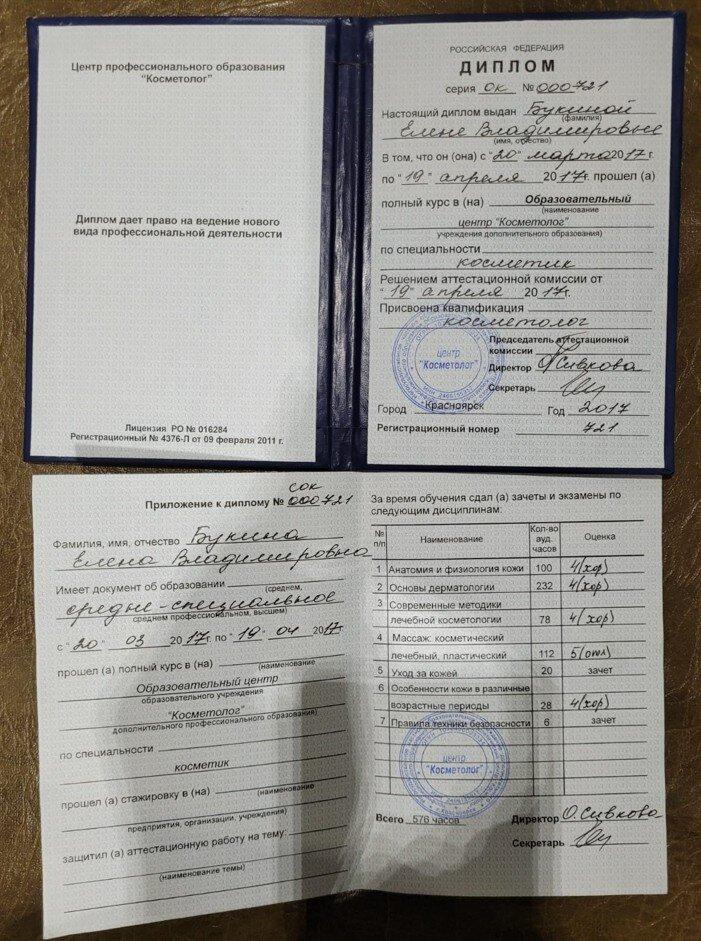 Центр профессионального образования
"Косметолог"
Диплом дает право на ведение нового
вида профессиональной деятельности
Лицензия РО № 016284
Регистрационный № 4376-Л от 09 февраля 2011 г.
РОССИЙСКАЯ ФЕДЕРАЦИЯ
ДИПЛОМ
серия ОК № 000721
Настоящий диплом выдан Букиной
(фамилия)
Елене Владимировне
(имя, отчество)
В том, что он (она) с "20" марта 2017г.
по "19" апреля 2017г. прошел (а)
полный курс в (на) Образовательный
(наименование
центр "Косметолог"
учреждения дополнительного образования)
по специальности
косметик
Решением аттестационной комиссии от
"19" апреля 2017г.
Присвоена квалификация
косметолог
Председатель аттестационной
комиссии
Директор О.Сивкова
Секретарь
центр
"Косметолог"
Город Красноярск Год 2017
Регистрационный номер 721
Приложение к диплому № СОК 000721
Фамилия, имя, отчество Букина
Елена Владимировна
Имеет документ об образовании
(среднем,
средне-специальное
среднем профессиональном, высшем)
с "20" 03 2017г. по "19" 04 2017г.
прошел (а) полный курс в (на)
(наименование
Образовательный центр
образовательного учреждения
"Косметолог"
дополнительного профессионального образования)
по специальности
косметик
прошел (а) стажировку в (на)
(наименование
предприятия, организации, учреждения)
защитил (а) аттестационную работу на тему:
(наименование темы)
За время обучения сдал (а) зачеты и экзамены по
следующим дисциплинам:
№ п/п Наименование Кол-во ауд. часов Оценка
1 Анатомия и физиология кожи 100 4(хор)
2 Основы дерматологии 232 4(хор)
3 Современные методики
лечебной косметологии 78 4(хор)
4 Массаж: косметический
лечебный, пластический 112 5(отл)
5 Уход за кожей 20 зачет
6 Особенности кожи в различные
возрастные периоды 28 4(хор)
7 Правила техники безопасности 6 зачет
центр
"Косметолог"
Всего 576 часов
Директор О.Сивкова
Секретарь